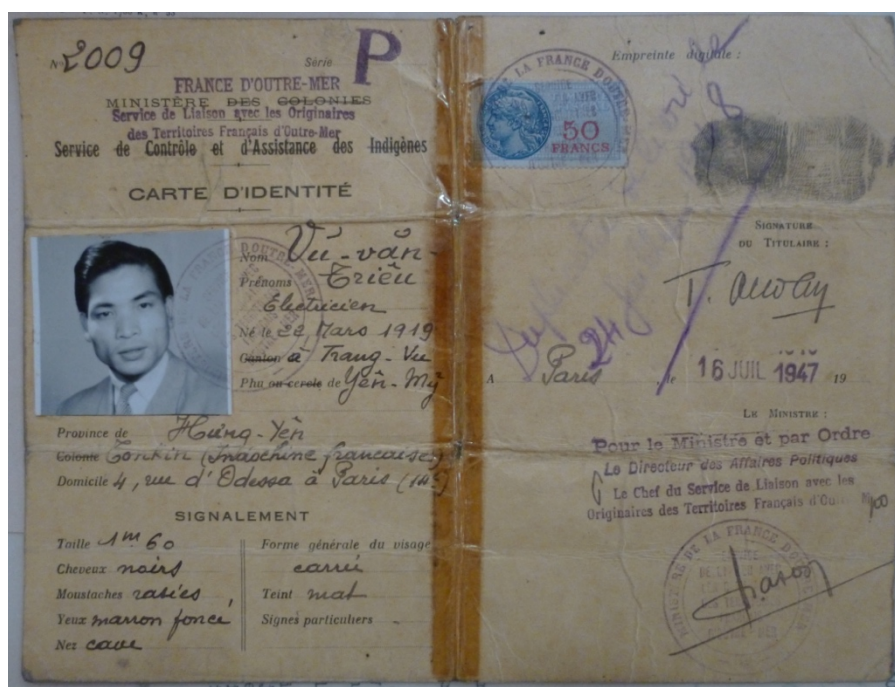 Nº 2009
Série P
FRANCE D'OUTRE-MER
MINISTÈRE DES COLONIES
Service de Liaison avec les Originaires
des Territoires Français d'Outre-Mer
Service de Contrôle et d'Assistance des Indigènes
CARTE D'IDENTITÉ
Nom Vu-văn-
Prénoms Triêu
Electricien
Né le 22 Mars 1919
Canton à Trang-Vu
Phu ou cercle de Yên-Mỹ
Province de Hưng-Yên
Colonie Tonkin (Indochine française)
Domicile 4, rue d'Odessa à Paris (14e)
SIGNALEMENT
Taille 1m60
Cheveux noirs
Moustaches rasées
Yeux marron foncé
Nez cave
Forme générale du visage
carré
Teint mat
Signes particuliers
Empreinte digitale :
DE LA FRANCE D'OUTRE-MER
50
FRANCS
SIGNATURE
DU TITULAIRE :
A Paris, le 16 JUIL 1947 19
LE MINISTRE :
Pour le Ministre et par Ordre
Le Directeur des Affaires Politiques
Le Chef du Service de Liaison avec les
Originaires des Territoires Français d'Ou
MINISTÈRE DE LA FRANCE D'OUTRE-MER